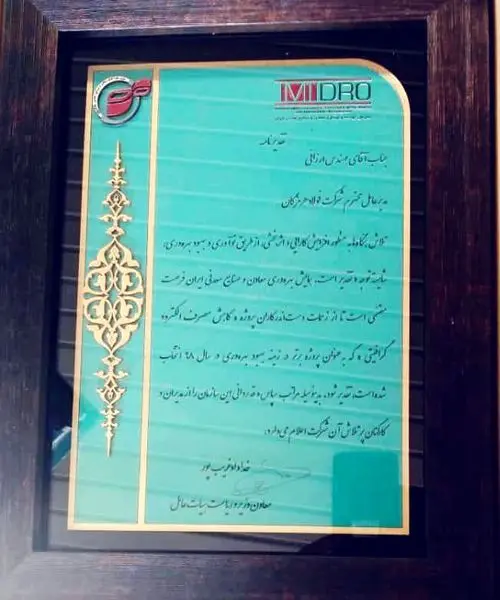 IMIDRO
تقدیرنامه
جناب آقای مهندس ارزانی
مدیرعامل محترم شرکت فولاد هرمزگان
تلاش بنگاه‌ها به منظور افزایش کارایی و اثربخشی، از طریق نوآوری و بهبود بهره‌وری،
شایسته توجه و تقدیر است. همایش بهره‌وری معادن و صنایع معدنی ایران فرصت
مغتنمی است تا از زحمات دست‌اندرکاران پروژه « کاهش مصرف الکترود
گرافیتی » که به عنوان پروژه برتر در زمینه بهبود بهره‌وری در سال ۹۸ انتخاب
شده است، تقدیر شود. بدینوسیله مراتب سپاس و قدردانی این سازمان را از مدیران و
کارکنان پرتلاش آن شرکت اعلام می‌دارد.
خداداد غریب پور
معاون وزیر و ریاست هیات عامل